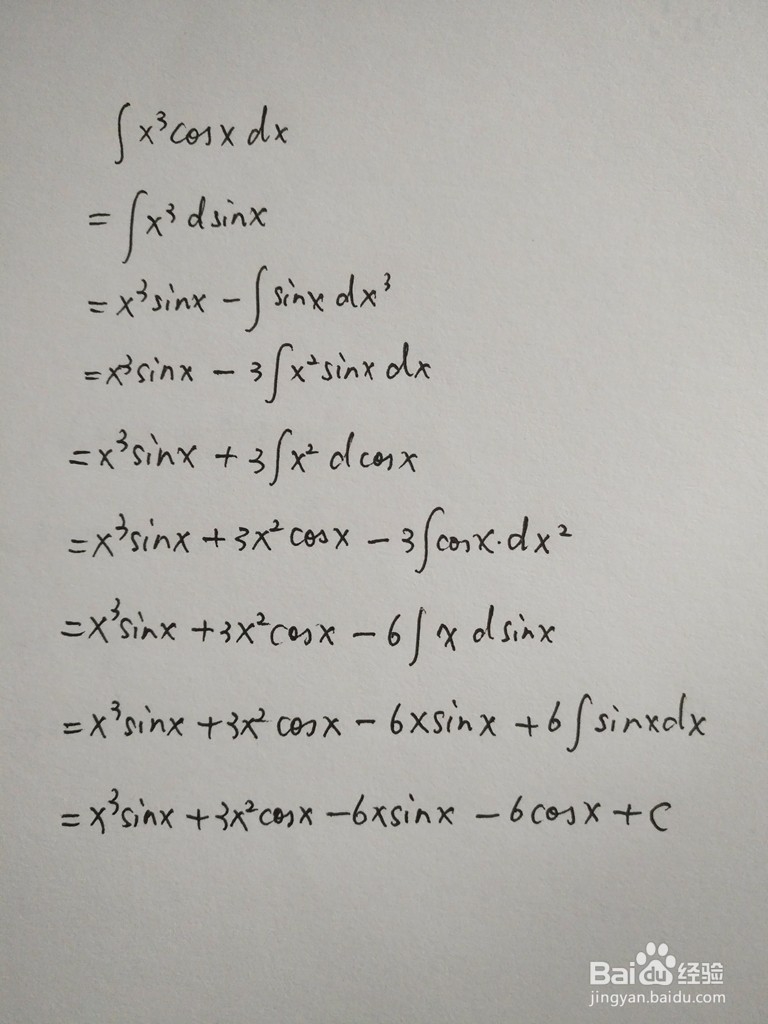 ∫x³cosx dx
= ∫x³ dsinx
= x³sinx - ∫sinx dx³
= x³sinx - 3∫x²sinx dx
= x³sinx + 3∫x² dcosx
= x³sinx + 3x²cosx - 3∫cosx·dx²
= x³sinx + 3x²cosx - 6∫x dsinx
= x³sinx + 3x²cosx - 6xsinx + 6∫sinxdx
= x³sinx + 3x²cosx - 6xsinx - 6cosx + C
Baidu经验
jingyan.baidu.com